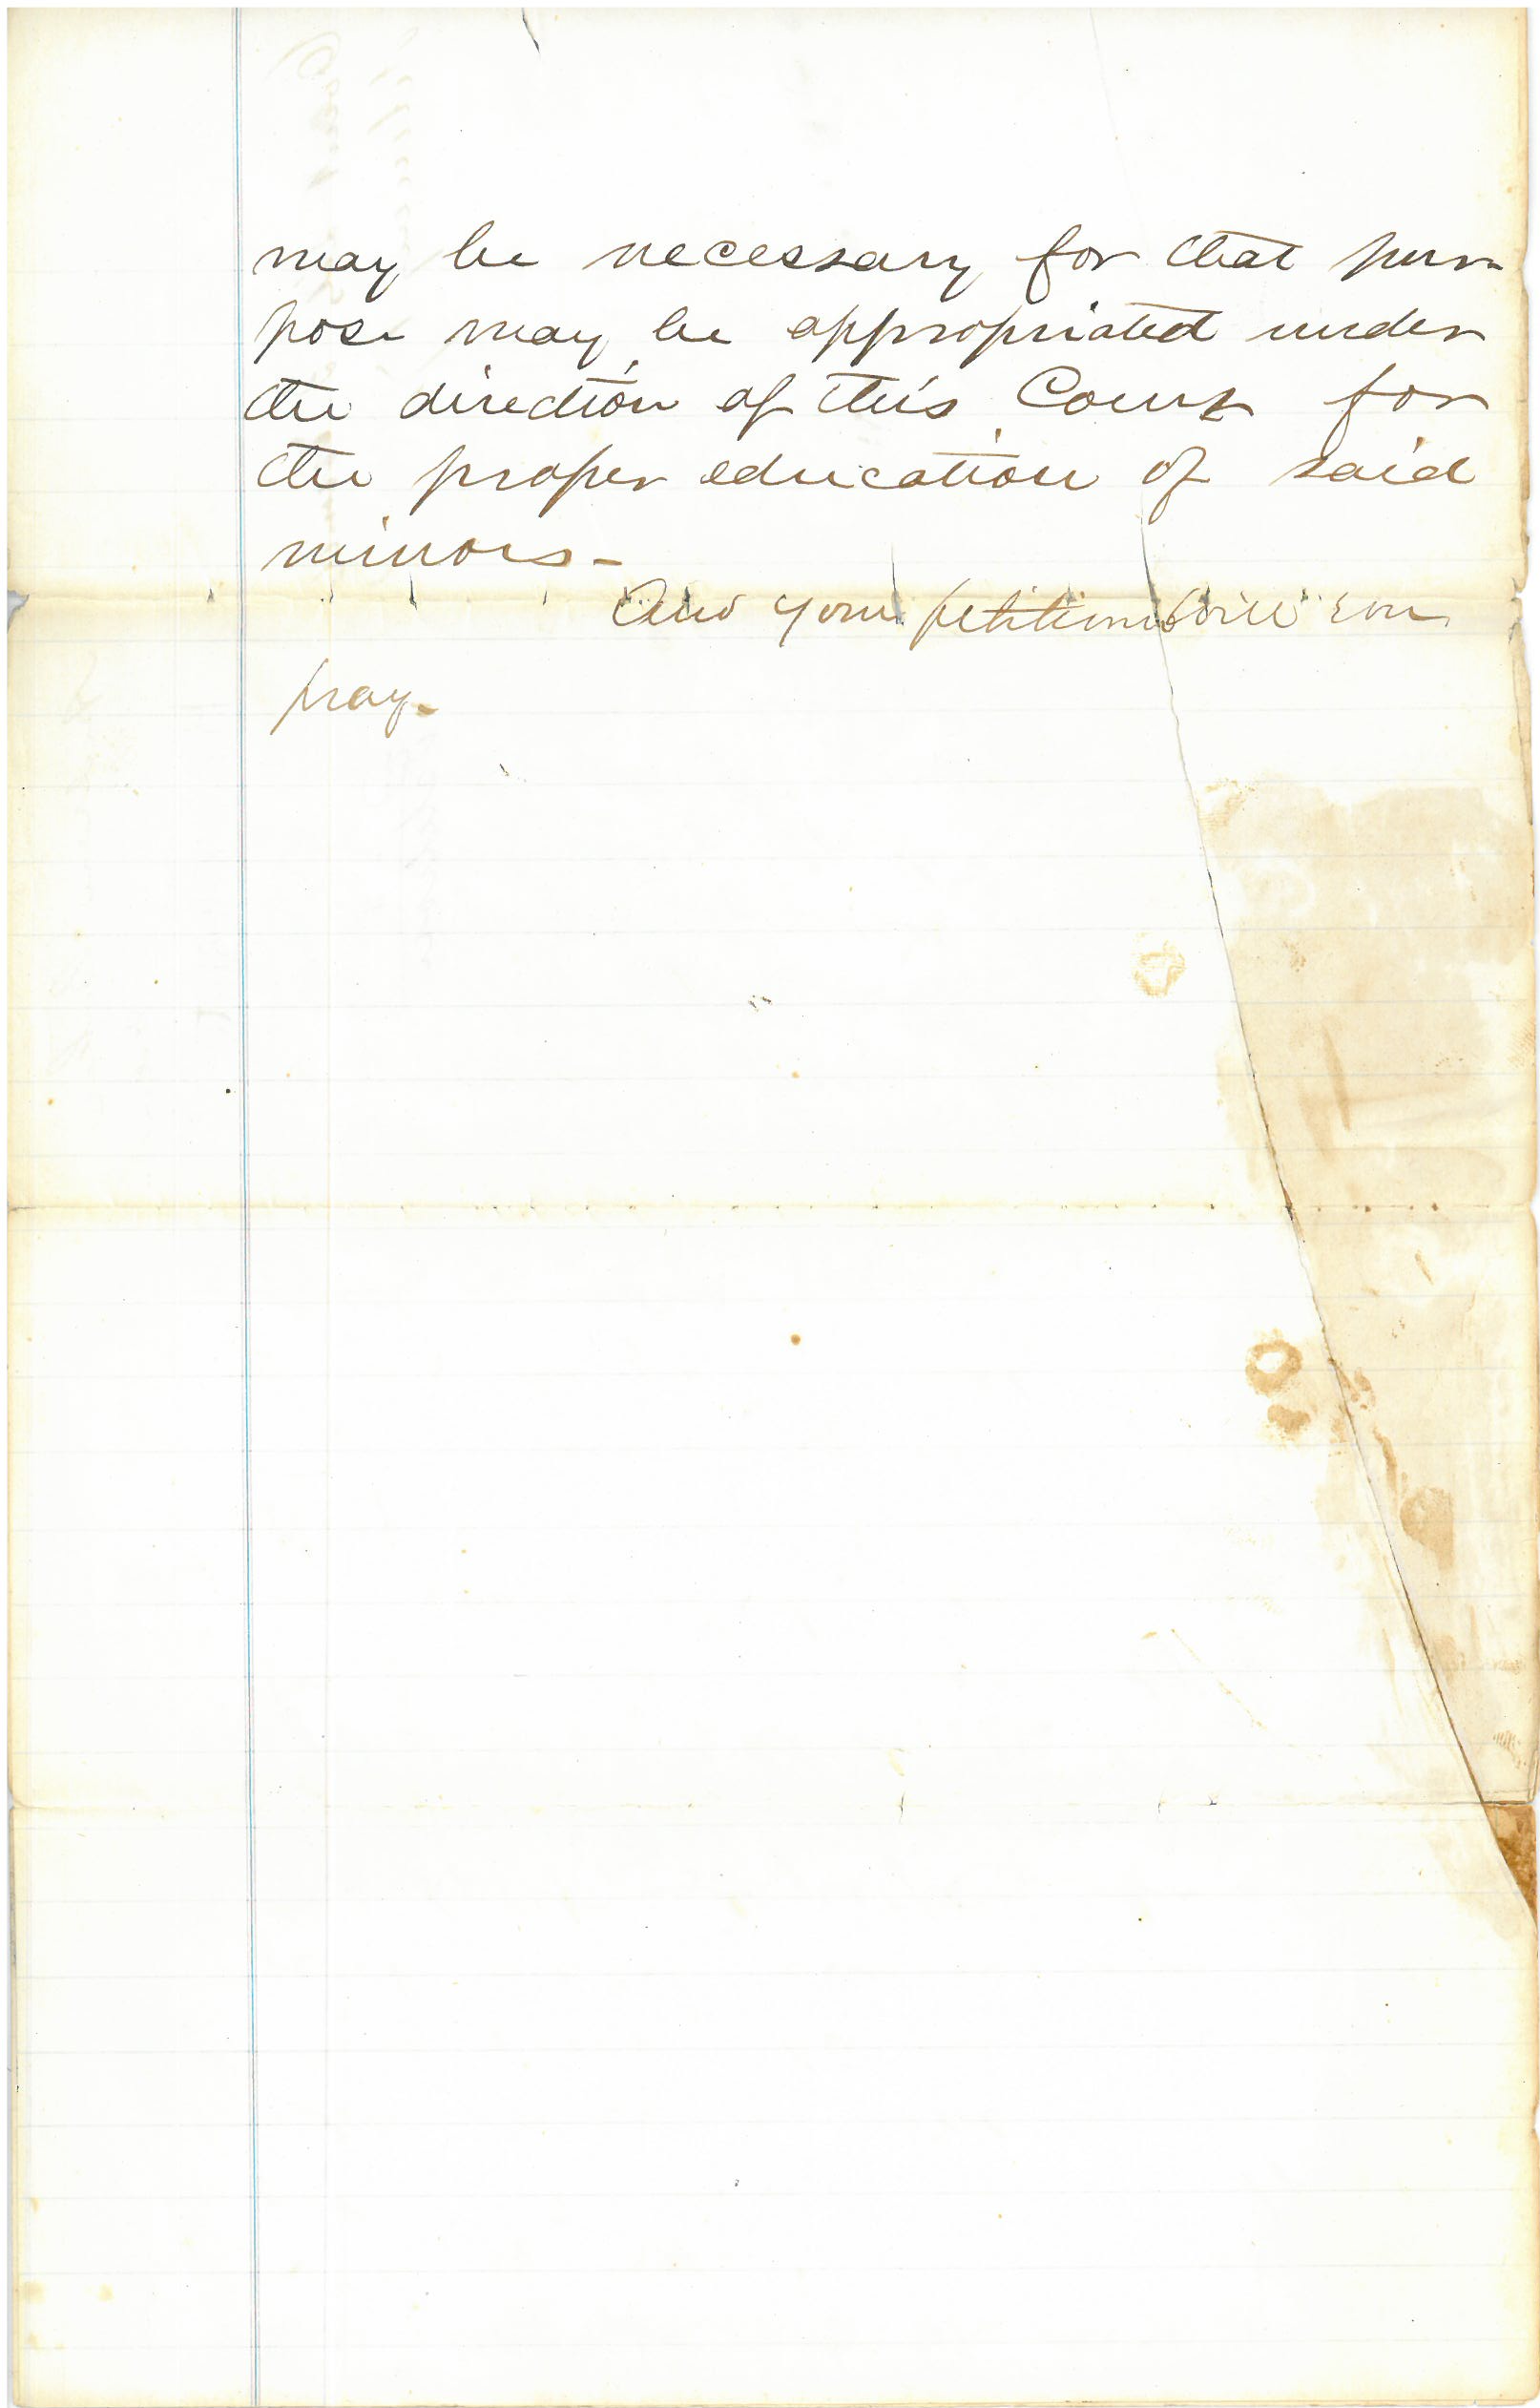 may be necessary for that pur-
pose may be appropriated under
the direction of this Court for
the proper education of said
minors-
And your petitioner will ever
pray-